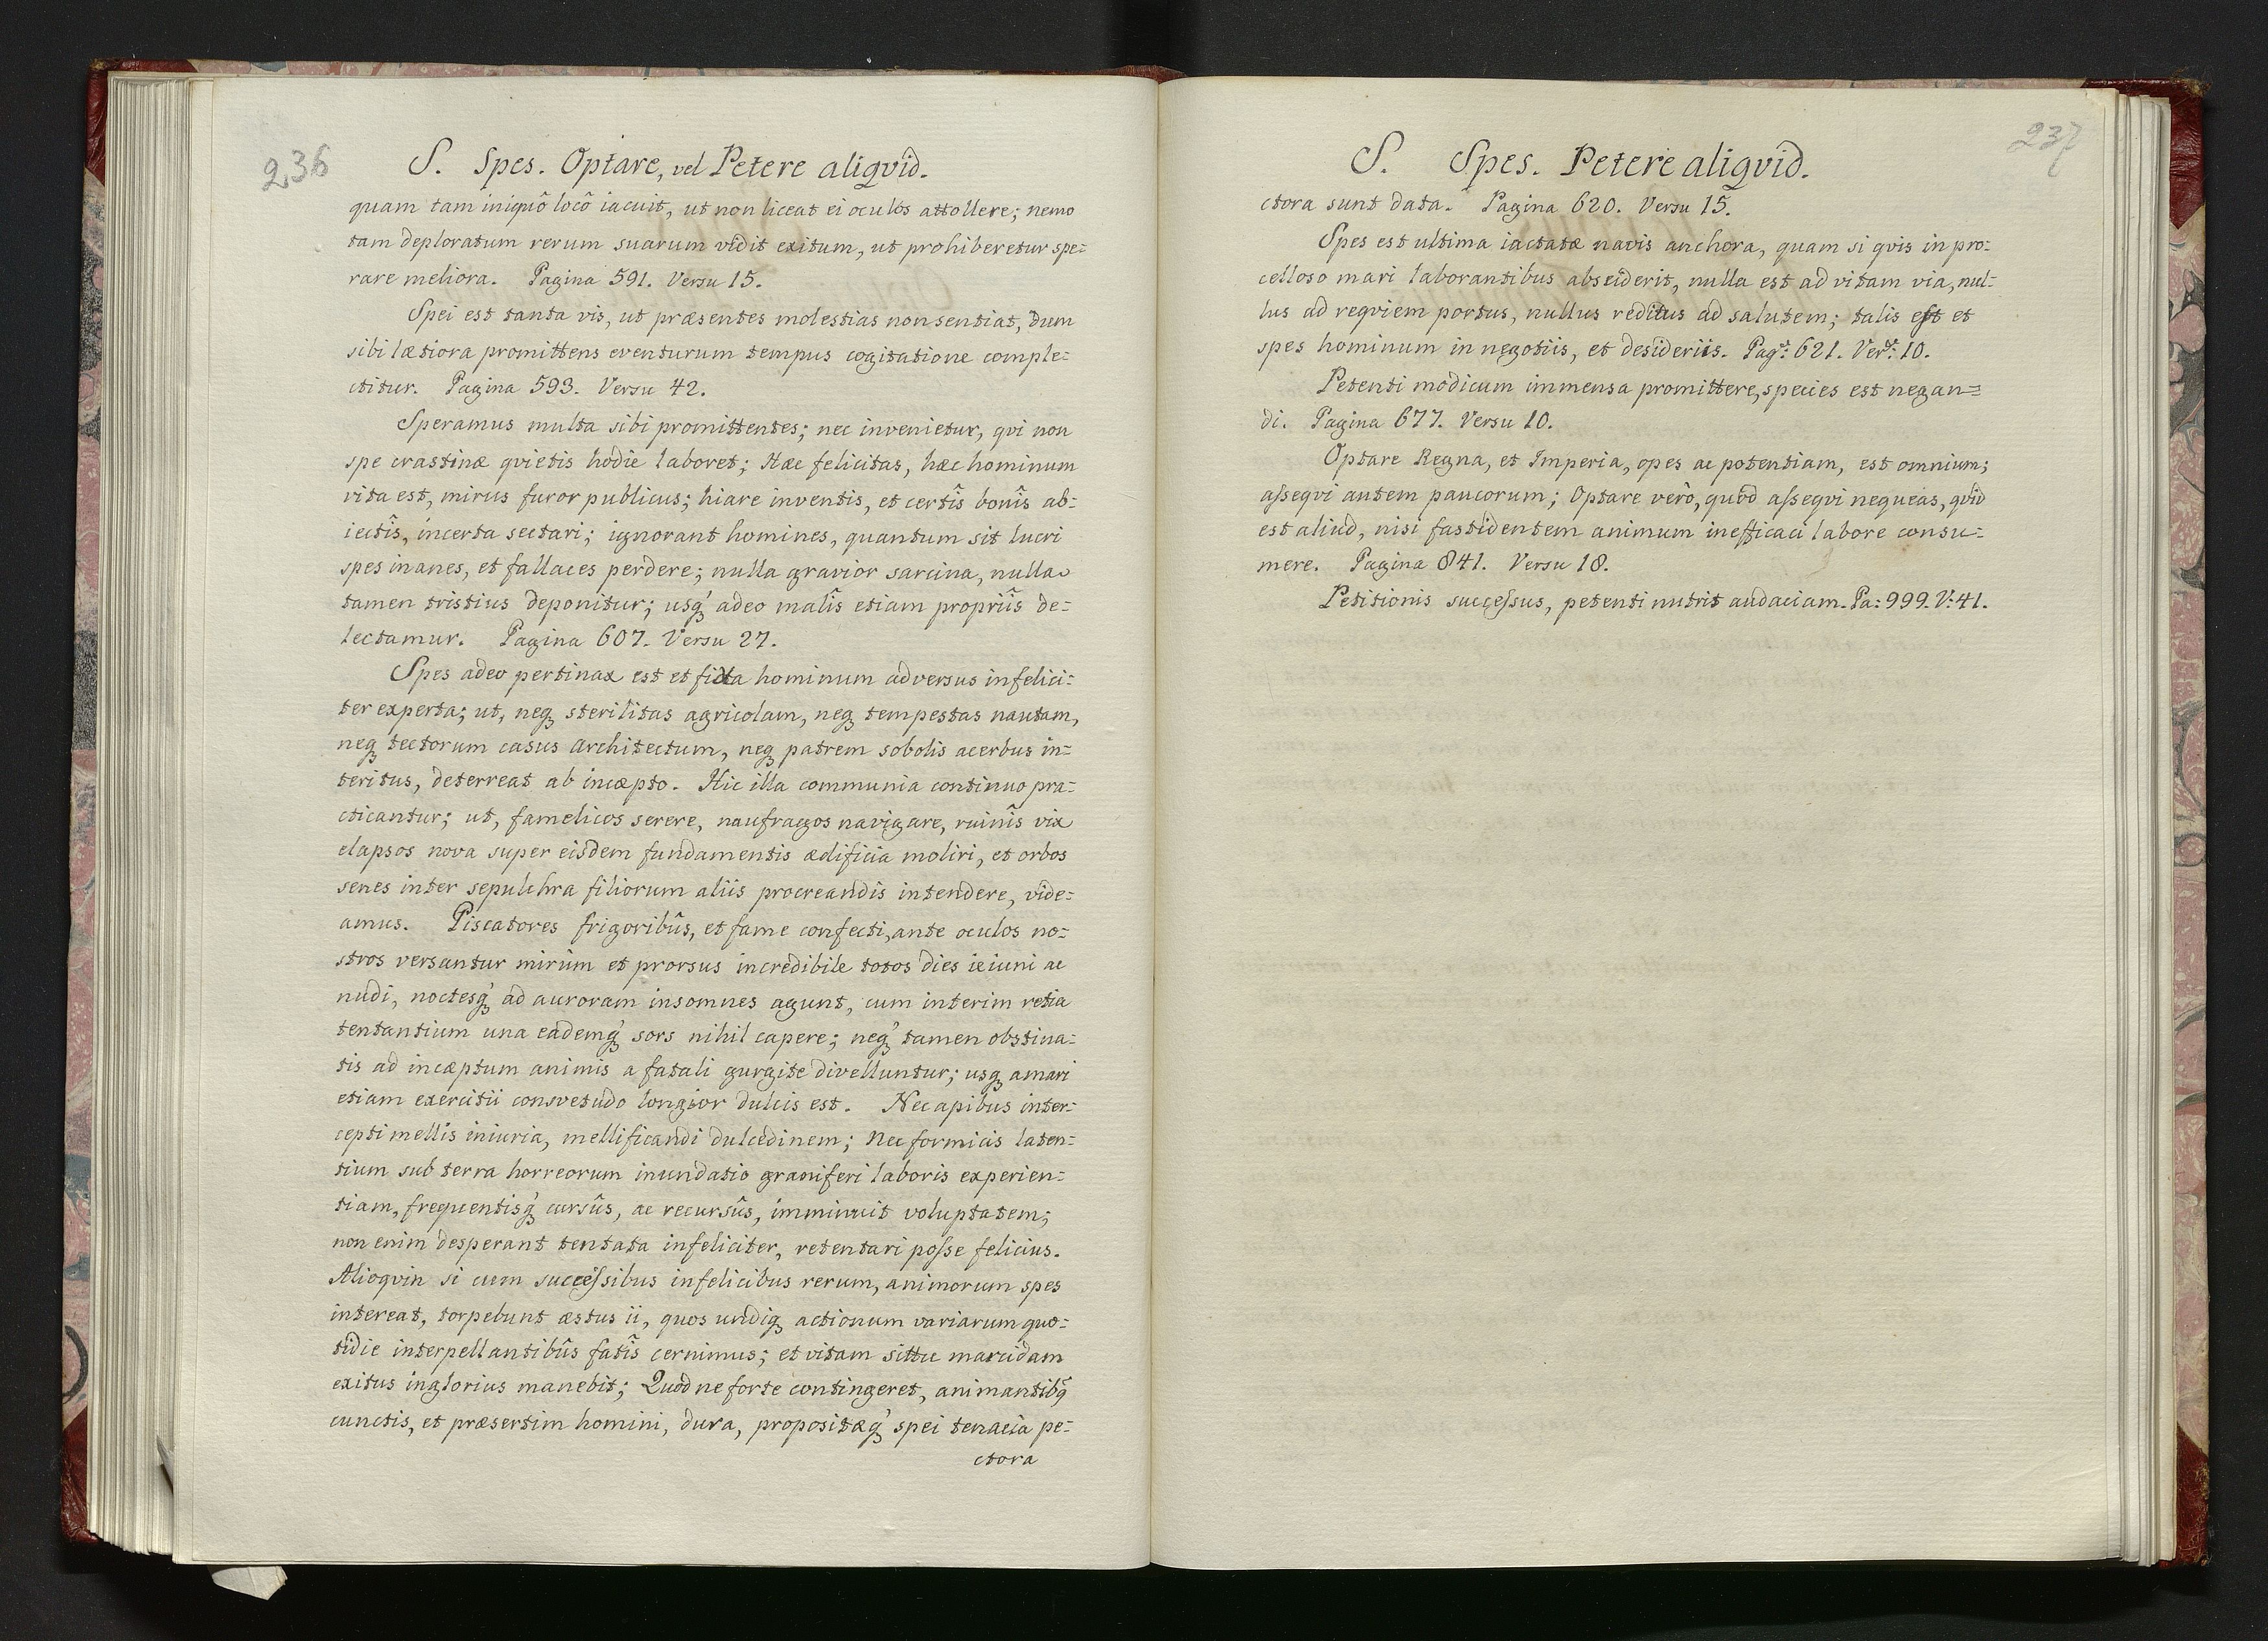 236
S. Spes. Optare, vel Petere aliqvid.
quam tam iniquô locô iacuit, ut non liceat ei oculos attollere; nemo
tam deploratum rerum suarum vidit exitum, ut prohiberetur spe-
rare meliora. Pagina 591. Versu 15.
Spei est tanta vis, ut præsentes molestias non sentiat, dum
sibi lætiora promittens eventurum tempus cogitatione comple-
ctitur. Pagina 593. Versu 42.
Speramus multa sibi promittentes; nec invenietur, qvi non
spe crastinæ qvietis hodie laboret; Hæc felicitas, hæc hominum
vita est, mirus furor publicus; hiare inventis, et certîs bonîs ab-
iectîs, incerta sectari; ignorant homines, quantum sit lucri
spes inanes, et fallaces perdere; nulla gravior sarcina, nulla
tamen tristius deponitur; usq' adeo malîs etiam propriîs de-
lectamur. Pagina 607. Versu 27.
Spes adeo pertinax est et ficta hominum adversus infelici-
ter experta; ut, neq sterilitas agricolam, neq tempestas nautam,
neq tectorum casus architectum, neq patrem sobolis acerbus in-
teritus, deterreat ab incæpto. Hic illa communia continuo pra-
cticantur; ut, famelicos serere, naufragos navigare, ruinîs vix
elapsos nova super eisdem fundamentis ædificia moliri, et orbos
senes inter sepulchra filiorum aliis procreandis intendere, vide-
amus. Piscatores frigoribûs, et fame confecti, ante oculos no-
stros versantur mirùm et prorsus incredibile totos dies ieiuni ac
nudi, noctesq' ad auroram insomnes agunt, cum interim retia
tentantium una eademq' sors nihil capere; neq' tamen obstina-
tis ad incæptum animis a fatali gurgite divelluntur; usq amari
etiam exercitii consvetudo longior dulcis est. Nec apibus inter-
cepti mellis iniuria, mellificandi dulcedinem; nec formicis laten-
tium sub terra horreorum inundatio graniferi laboris experien-
tiam, frequentisq' cursûs, ac recursûs, imminuit voluptatem;
non enim desperant tentata infeliciter, retentari posse felicius.
Alioqvin si cum successibus infelicibus rerum, animorum spes
intereat, torpebunt æstus ii, quos undiq actionum variarum quo-
tidie interpellantibûs fatîs cernimus; et vitam sittu marcidam
exitus inglorius manebit; Quod ne forte contingeret, animantibq
cunctis, et præsertim homini, dura, propositæq' spei tenacia pe-
ctora
237
S. Spes. Petere aliqvid.
ctora sunt data. Pagina 620. Versu 15.
Spes est ultima iactatæ navis anchora, quam si qvis in pro-
celloso mari laborantibus absciderit, nulla est ad vitam via, nul-
lus ad reqviem portus, nullus reditus ad salutem; talis est et
spes hominum in negotiis, et desideriis. Pag: 621. Ver: 10.
Petenti modicum immensa promittere, species est negan-
di. Pagina 677. Versu 10.
Optare Regna, et Imperia, opes ac potentiam, est omnium;
asseqvi autem paucorum; Optare verò, quòd asseqvi nequeas, qvid
est aliud, nisi fastidentem animum inefficaci labore consu-
mere. Pagina 841. Versu 18.
Petitionis successus, petenti nutrit audaciam. Pa: 999. V: 41.